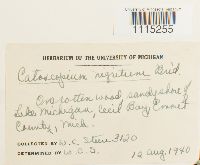 1115255
HERBARIUM OF THE UNIVERSITY OF MICHIGAN
Catoscopium nigritum Brid.
On rotten wood, sandy shore of
Lake Michigan, Cecil Bay, Emmet
County, Mich.
COLLECTED BY W. C. Steere 3120
DETERMINED BY W.C.S. 12 Aug. 1940